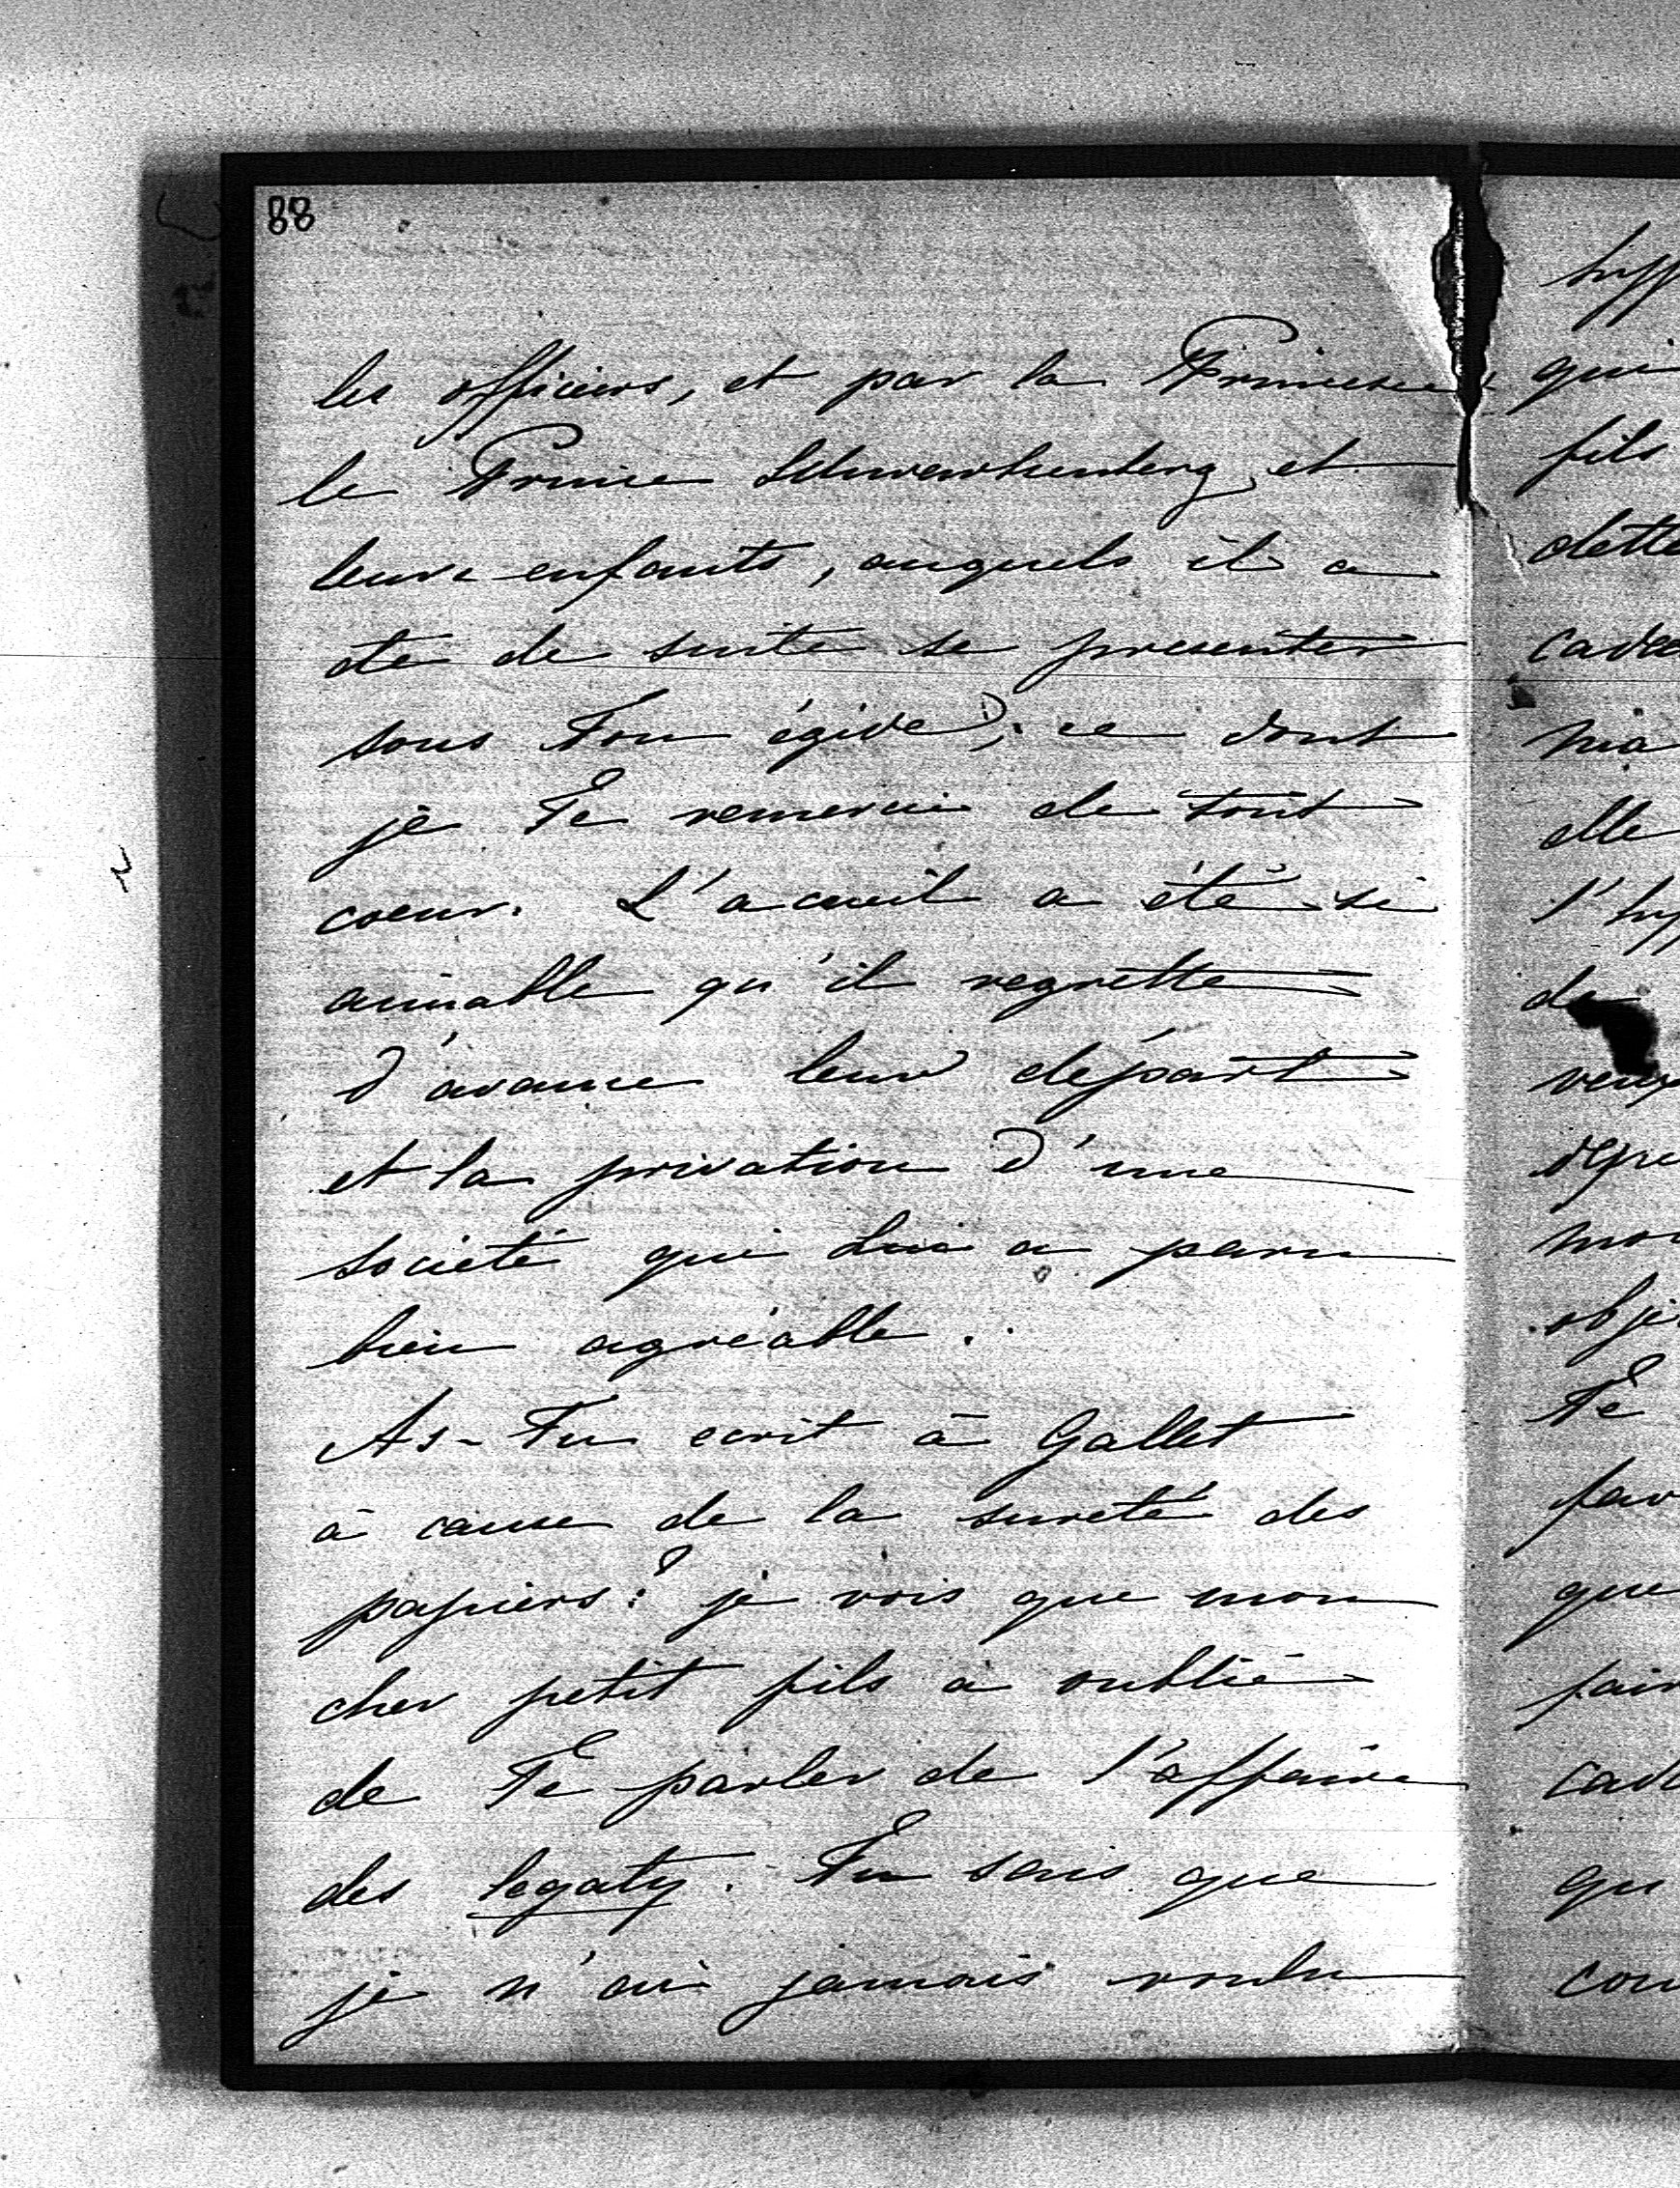 88
les officiers, et par la Princesse
le Prince et
leurs enfants, auquels il a
été de suite se presenter
sous Ton égide, ce dont
je Te remercie de tout
coeur. L'acueil a été si
aimable qu'il regrette
d'avance leur départ
et la privation d'une
société qui Lui a paru
bien agréable.
As-Tu ecrit à Gallet
à cause de la sureté des
papiers? je vois que mon
cher petit fils à oublié
de Te parler de l'affaire
des legaty. Tu sais que
je n'ai jamais voulu
qui
fils
dette
ma
elle
de
Te
que